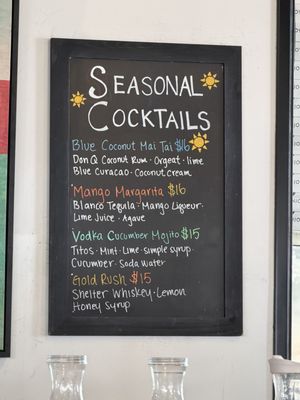 Seasonal
Cocktails
Blue Coconut Mai Tai $16
Don Q Coconut Rum · Orgeat · lime
Blue Curacao · Coconut cream
Mango Margarita $16
Blanco Tequila · Mango Liqueur ·
Lime Juice · Agave
Vodka Cucumber Mojito $15
Titos · Mint · Lime · Simple syrup ·
Cucumber · Soda Water
Gold Rush $15
Shelter Whiskey · Lemon
Honey Syrup